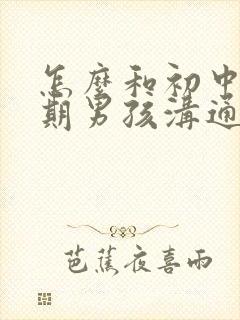 怎麼和初中
期男孩溝通
芭蕉夜喜雨